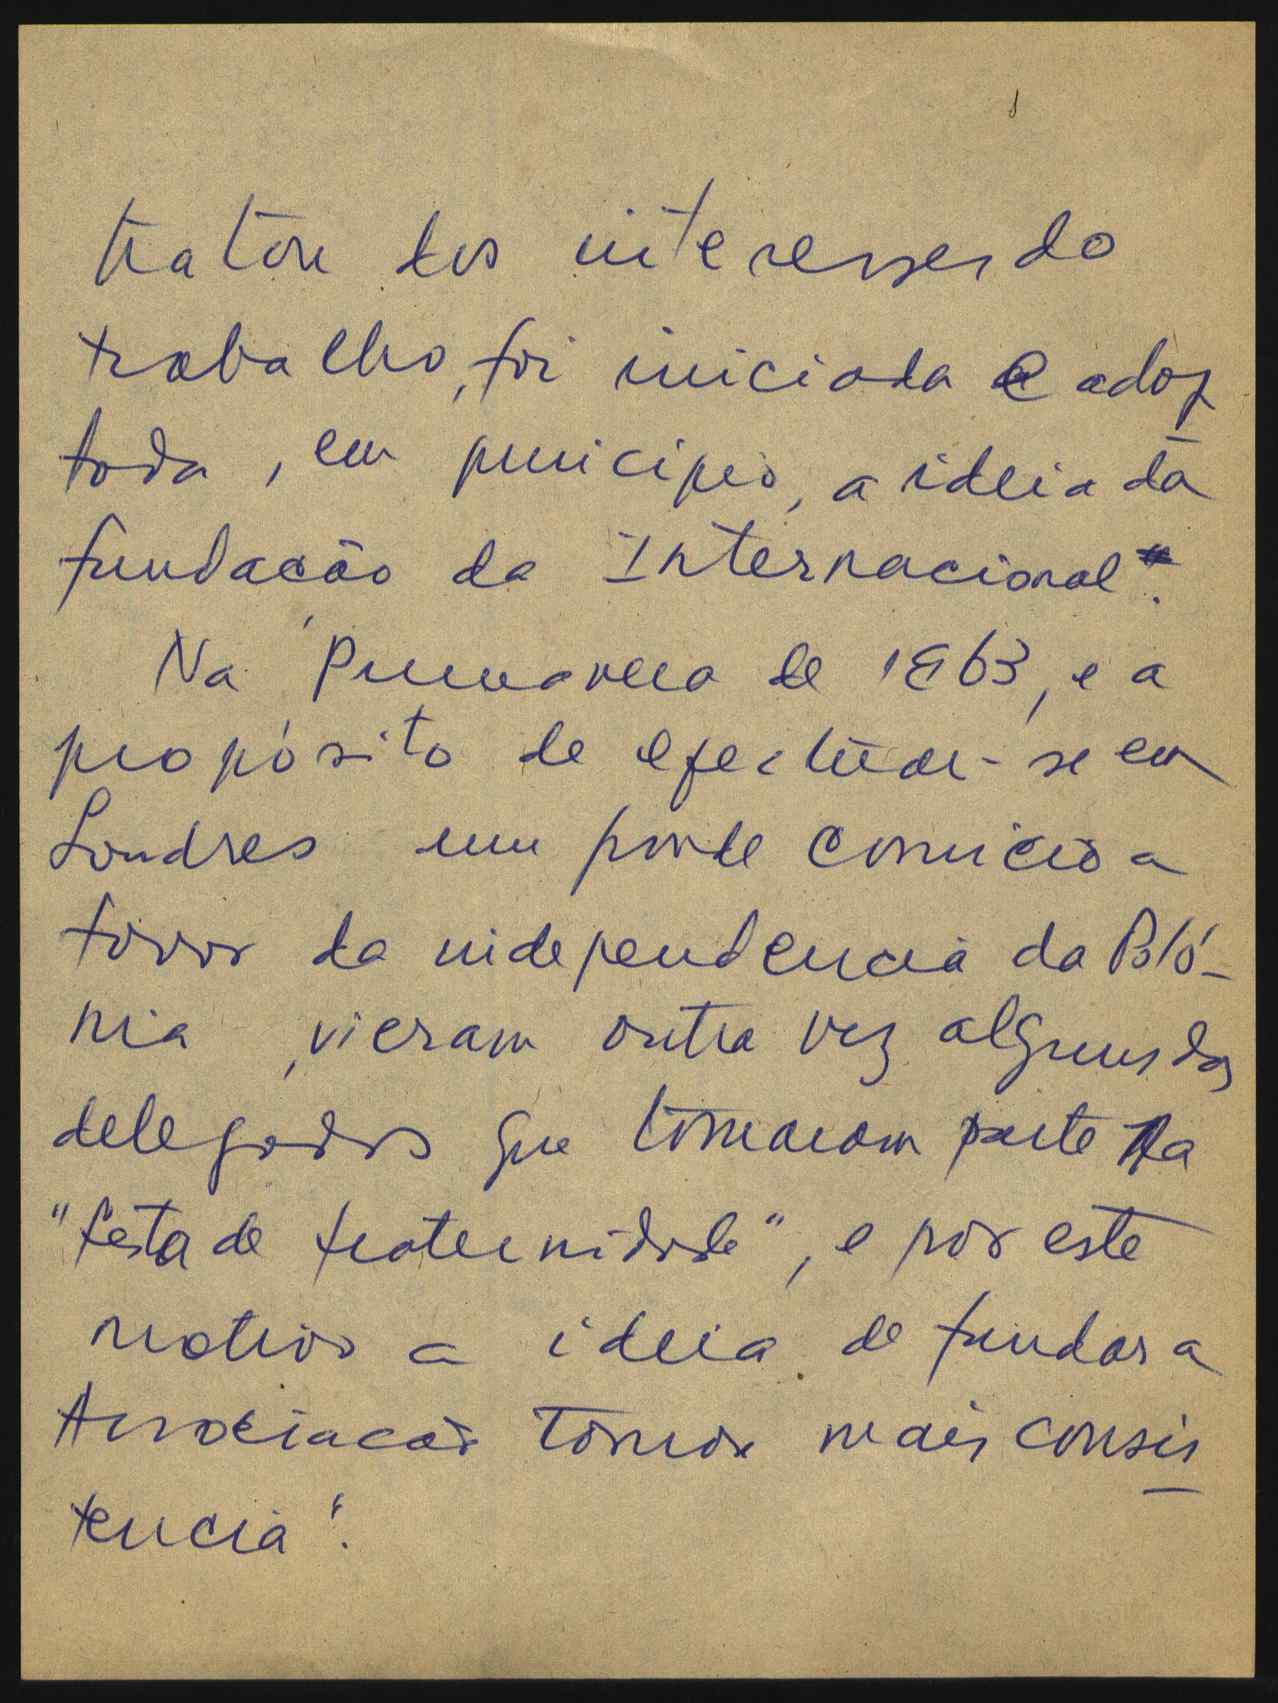 tratou dos interesses do
trabalho, foi iniciada e adop
tada, em principio, a ideia da
fundação da Internacional".
Na Primavera de 1863, e a
propósito de efectuar-se em
Londres um grande comicio a
favor da independencia da Poló-
nia, vieram outra vez alguns dos
delegados que tomaram parte na
"festa de fraternidade", e por este
motivo a ideia de fundar a
Associacão tomou mais consis
tencia".